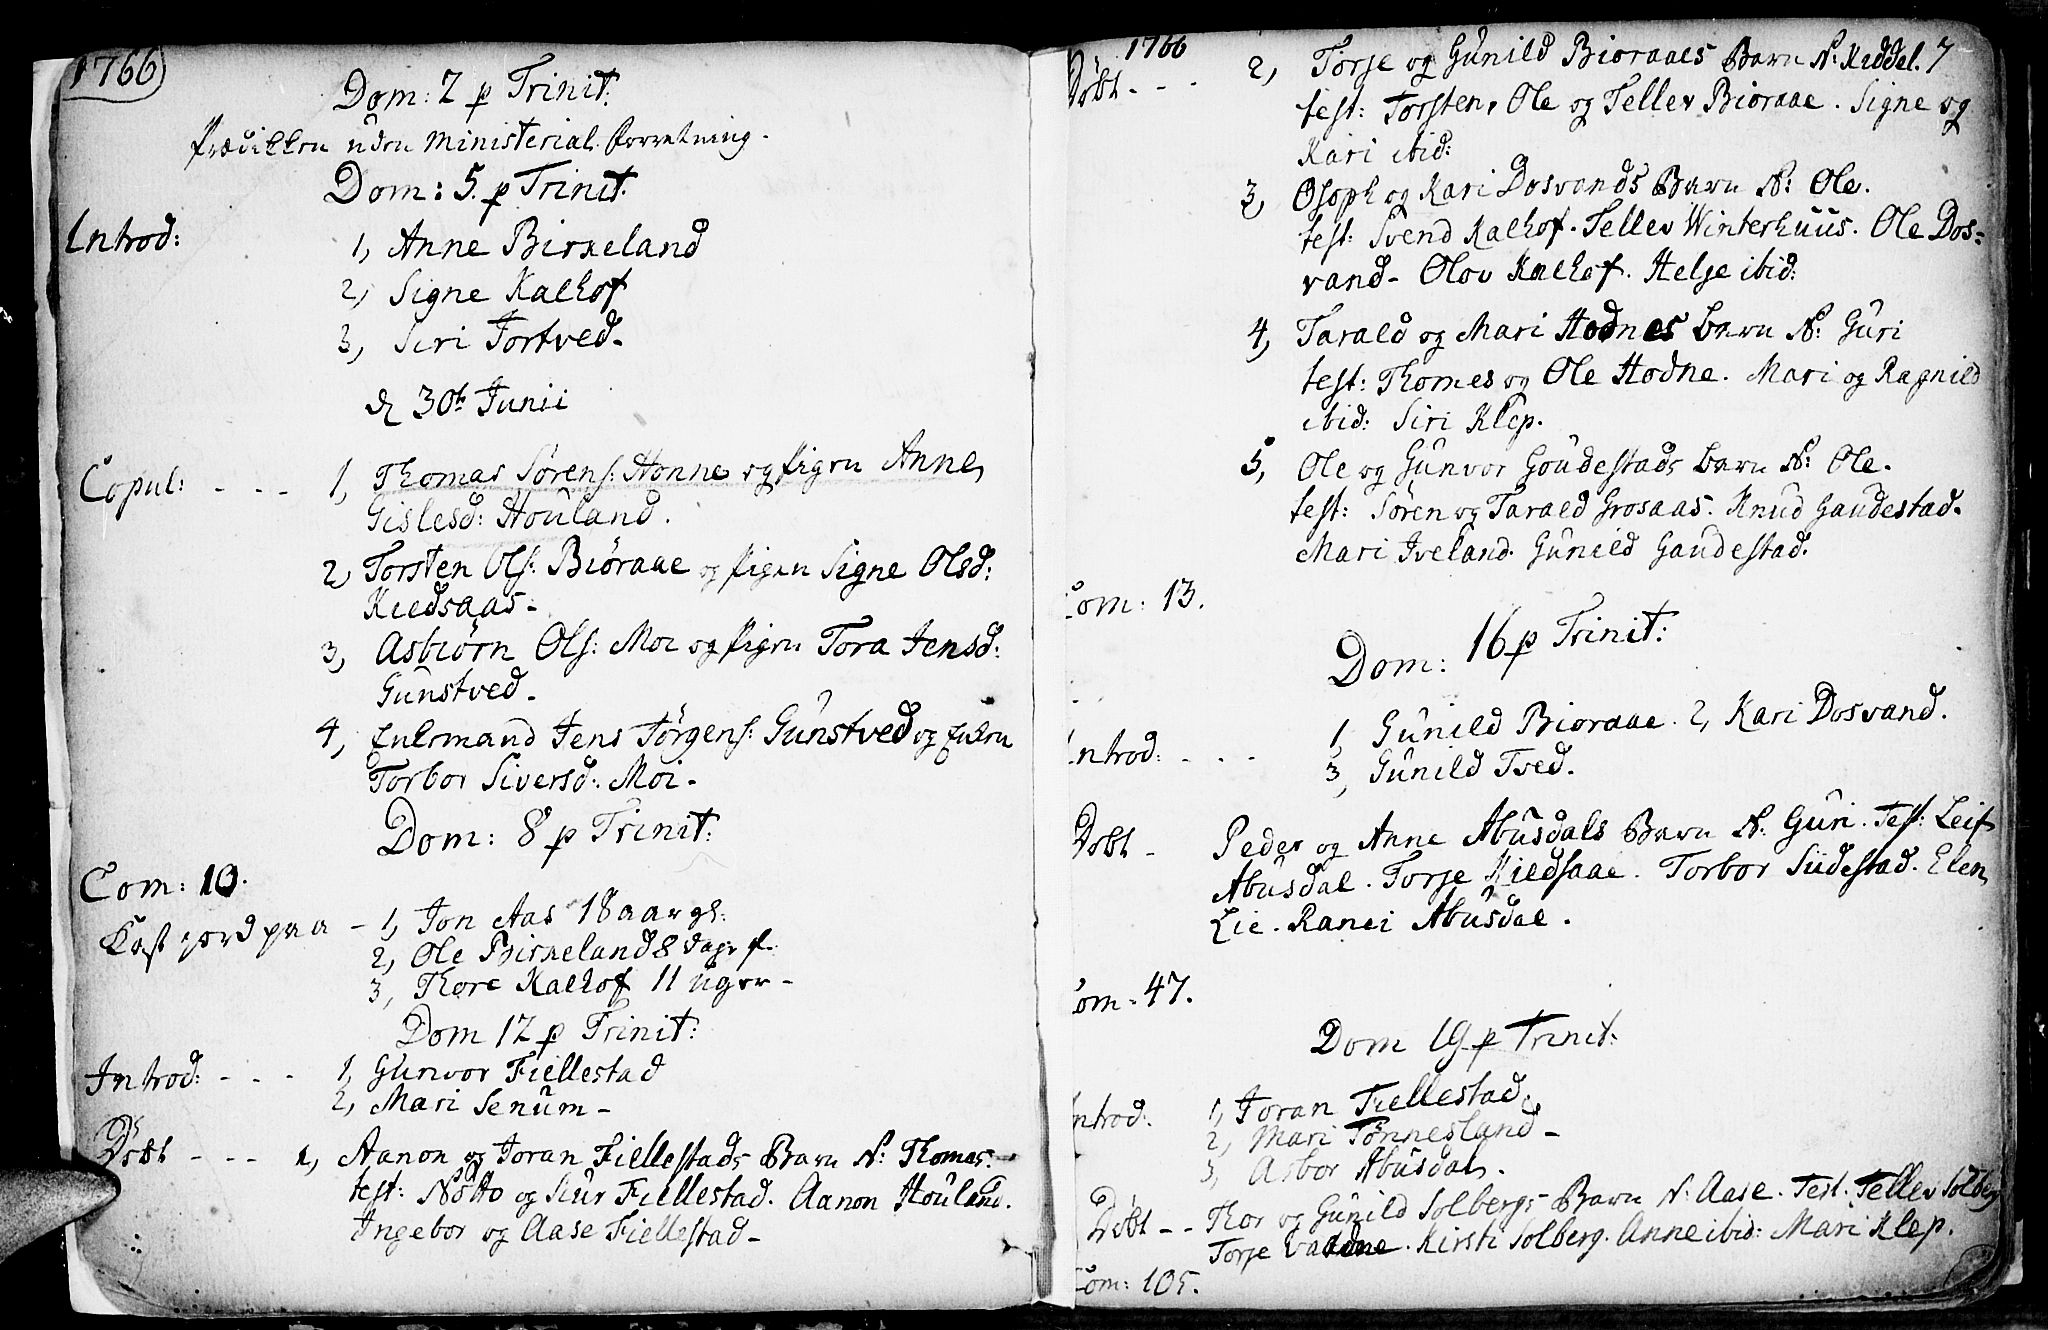 1766
Dom: 2 p Trinit:
Prædikken uden Ministerial. Forretning.
Dom: 5. p Trinit.
Introd:
1, Anne Birkeland
2, Signe Kalhof
3, Siri Tortved.
d 30te Junii
Copul: - - - 1, Thomas Sørens: Honne og pigen Anne
Gislesd: Houland.
2, Torsten Ols: Bioraae og pigen Signe Olsd:
Kiedsaas-
3, Asbiørn Ols: Moi og pigen Tora Jensd:
Gunstved-
4, Enkemand Jens Jørgens: Gunstved og Enken
Torbor Siversd: Moi-
Dom: 8 p Trinit:
Com: 10.
Kast jord paa - 1, Jon Aas 18 aar gl:
2, Ole Birkeland 8 dage gl.
3, Thore Kalhof 11 uger-
Dom 12 p Trinit:
Introd: - - - 1, Gunvor Fiellestad
2, Mari Senum-
Døbt - - - 1, Aanon og Joran Fiellestads Barn N: Thomas.
test: Notto og Siur Fiellestad. Aanon Houland.
Ingebor og Aase Fiellestad-
1766
7
Døbt - - - 2, Torje og Gunild Bioraaes Barn N: Keddel.
test: Torsten, Ole og Tellev Bioraae. Signe og
Kari ibid:
3, Osoph og Kari Dosvands Barn N: Ole.
test: Svend Kalhof. Tellev Winterhuus. Ole Dos-
vand- Olov Kalhof. Helje ibid:
4, Tarald og Mari Hodnes barn N: Guri
test: Thomes og Ole Hodne. Mari og Ragnild
ibid: Siri Klep.
5, Ole og Gunvor Goudestads barn N: Ole.
test: Søren og Tarald Grosaas. Knud Gaudestad.
Mari Iveland. Gunild Gaudestad.
Com: 13.
Dom: 16 p Trinit:
Introd: - - - 1, Gunild Bioraae. 2, Kari Dosvand.
3, Gunild Tved.
Døbt - Peder og Anne Abusdals Barn N: Guri. Test: Leif
Abusdal. Torje Kiedsaae. Torbor Sudestad. Elen
Lie. Ranei Abusdal.
Com: 47.
Dom 19 p Trinit:
Introd: 1, Joran Fiellestad.
2, Mari Tønnesland-
3, Asbor Abusdal.
Døbt - - Thor og Gunild Solbergs Barn N: Aase. Test: Tellev Solberg
Torje. Kirsti Solberg. Anne ibid: Mari Klep.
Com: 105.